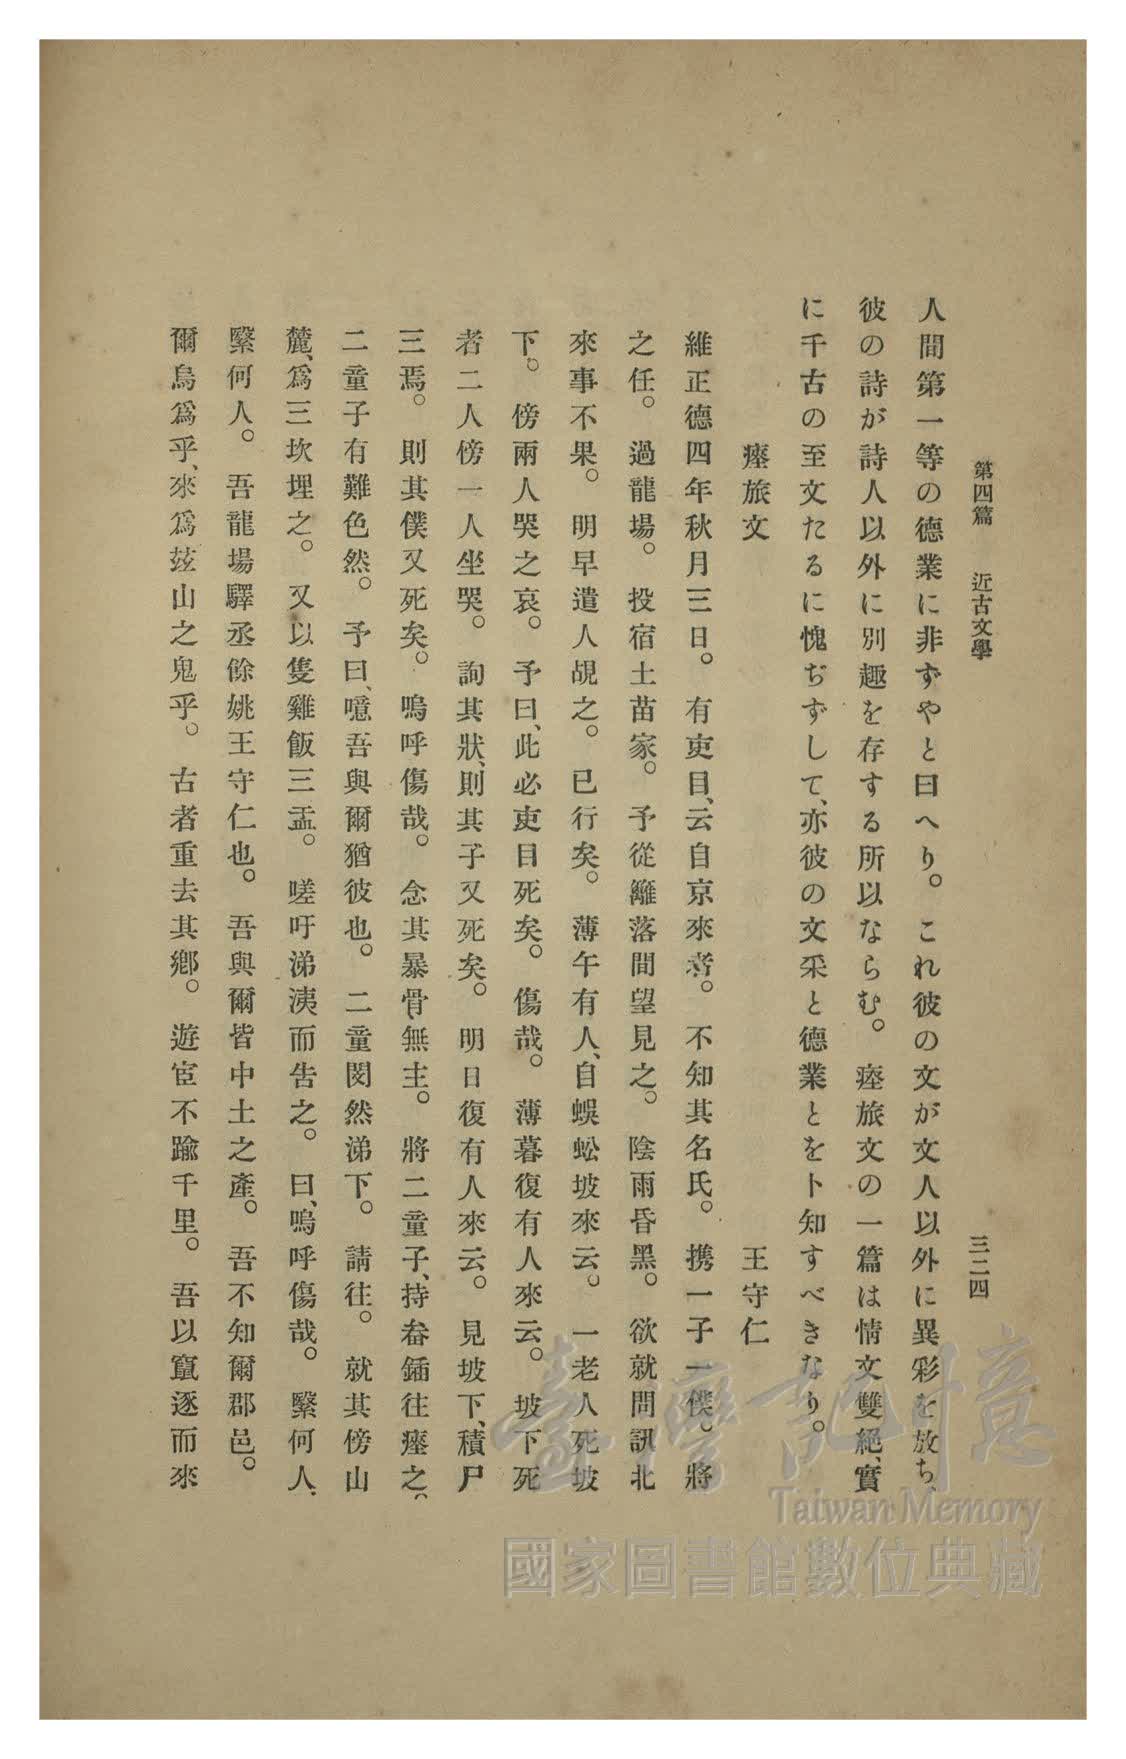 第四篇　近古文學　三二四
人間第一等の德業に非ずやと曰へり。これ彼の文が文人以外に異彩を放ち、
彼の詩が詩人以外に別趣を存する所以ならむ。瘞旅文の一篇は情文雙絕、實
に千古の至文たるに愧ぢずして、亦彼の文采と德業とを卜知すべきなり。
瘞旅文　王守仁
維正德四年秋月三日。有吏目、云自京來者。不知其名氏。携一子一僕。將
之任。過龍場。投宿土苗家。予從籬落間望見之。陰雨昏黑。欲就問訊北
來事不果。明早遣人覘之。已行矣。薄午有人、自蜈蚣坡來云。一老人死坡
下。傍兩人哭之哀。予曰、此必吏目死矣。傷哉。薄暮復有人來云。坡下死
者二人傍一人坐哭。詢其狀、則其子又死矣。明日復有人來云。見坡下、積尸
三焉。則其僕又死矣。嗚呼傷哉。念其暴骨、無主。將二童子、持畚鍤往瘞之。
二童子有難色然。予曰、噫吾與爾猶彼也。二童閔然涕下。請往。就其傍山
麓、爲三坎埋之。又以隻雞飯三盂。嗟吁涕洟而告之。曰、嗚呼傷哉。繄何人、
繄何人。吾龍場驛丞餘姚王守仁也。吾與爾皆中土之產。吾不知爾郡邑。
爾烏爲乎、來爲茲山之鬼乎。古者重去其鄕。遊宦不踰千里。吾以竄逐而來
臺灣記憶
Taiwan Memory
國家圖書館數位典藏